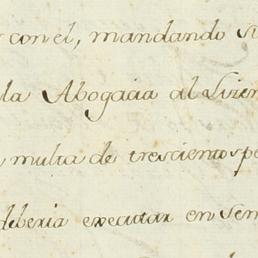 con el, mandando
la Abogacia al Licen
multa de trescientos pe
deberia executar en sem